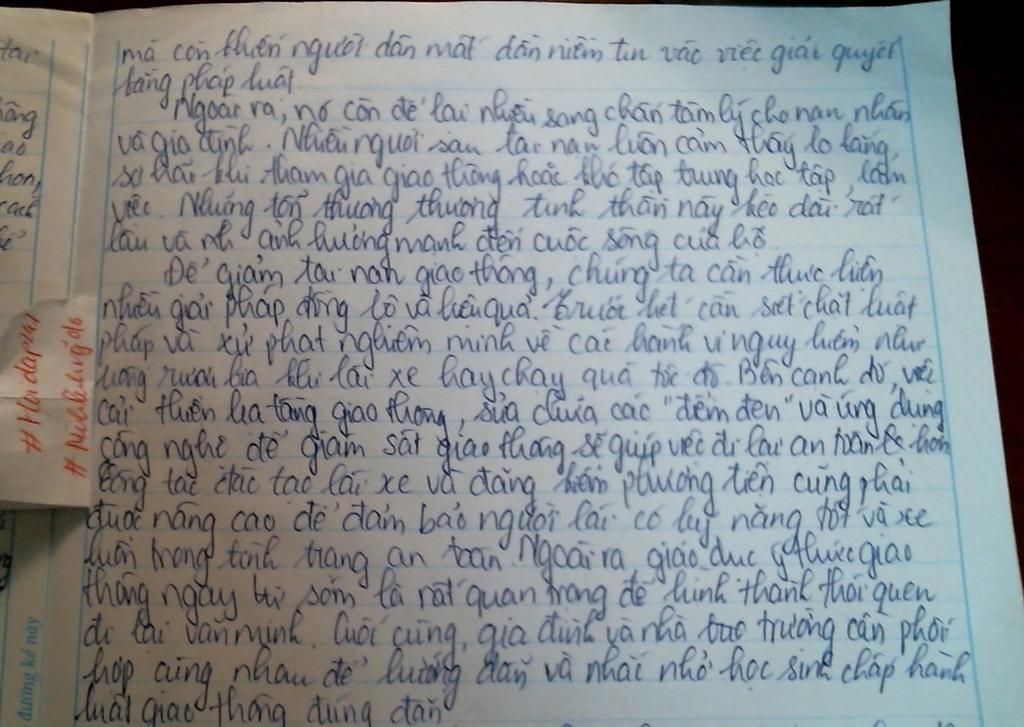 mà còn khiến người dân mất dần niềm tin vào việc giải quyết
bằng pháp luật.
Ngoài ra, nó còn để lại nhiều sang chấn tâm lý cho nạn nhân
và gia đình. Nhiều người sau tai nạn luôn cảm thấy lo lắng,
sợ hãi khi tham gia giao thông hoặc khó tập trung học tập, làm
việc. Những tổn thương thương tinh thần này kéo dài rất
lâu và nh ảnh hưởng mạnh đến cuộc sống của họ.
Để giảm tai nạn giao thông, chúng ta cần thực hiện
nhiều giải pháp đồng bộ và hiệu quả. Trước hết cần siết chặt luật
pháp và xử phạt nghiêm minh về các hành vi nguy hiểm như
uống rượu bia khi lái xe hay chạy quá tốc độ. Bên cạnh đó, việc
cải thiện hạ tầng giao thông, sửa chữa các "điểm đen" và ứng dụng
công nghệ để giám sát giao thông sẽ giúp việc đi lại an toàn hơn
Công tác đào tạo lái xe và đăng kiểm phương tiện cũng phải
được nâng cao để đảm bảo người lái có kỹ năng tốt và xe
luôn trong tình trạng an toàn. Ngoài ra, giáo dục ý thức giao
thông ngay từ sớm là rất quan trọng để hình thành thói quen
đi lại văn minh. Cuối cùng, gia đình và nhà trường cần phối
hợp cùng nhau để hướng dẫn và nhắc nhở học sinh chấp hành
luật giao thông đúng đắn
#Hoidap247
đường kẻ này